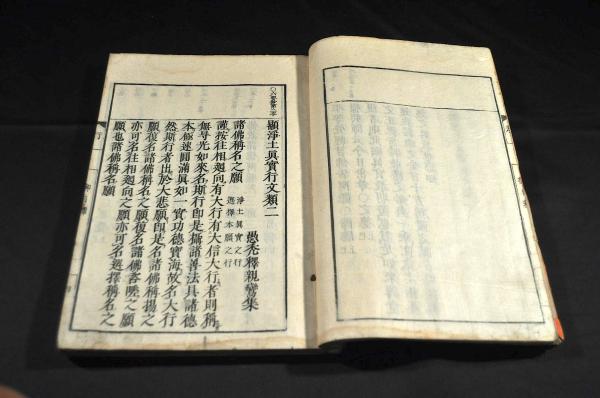 顯淨土眞實行文類二
愚禿釋親鸞集
諸佛稱名之願
淨土眞實之行
選擇本願之行
謹按往相廻向有大行有大信大行者則稱
無㝵光如來名斯行卽是攝諸善法具諸德
本極速圓滿眞如一實功德寶海故名大行
然斯行者出於大悲願卽是名諸佛稱揚之
願復名諸佛稱名之願復名諸佛咨嗟之願
亦可名往相廻向之願亦可名選擇稱名之
願也諸佛稱名願